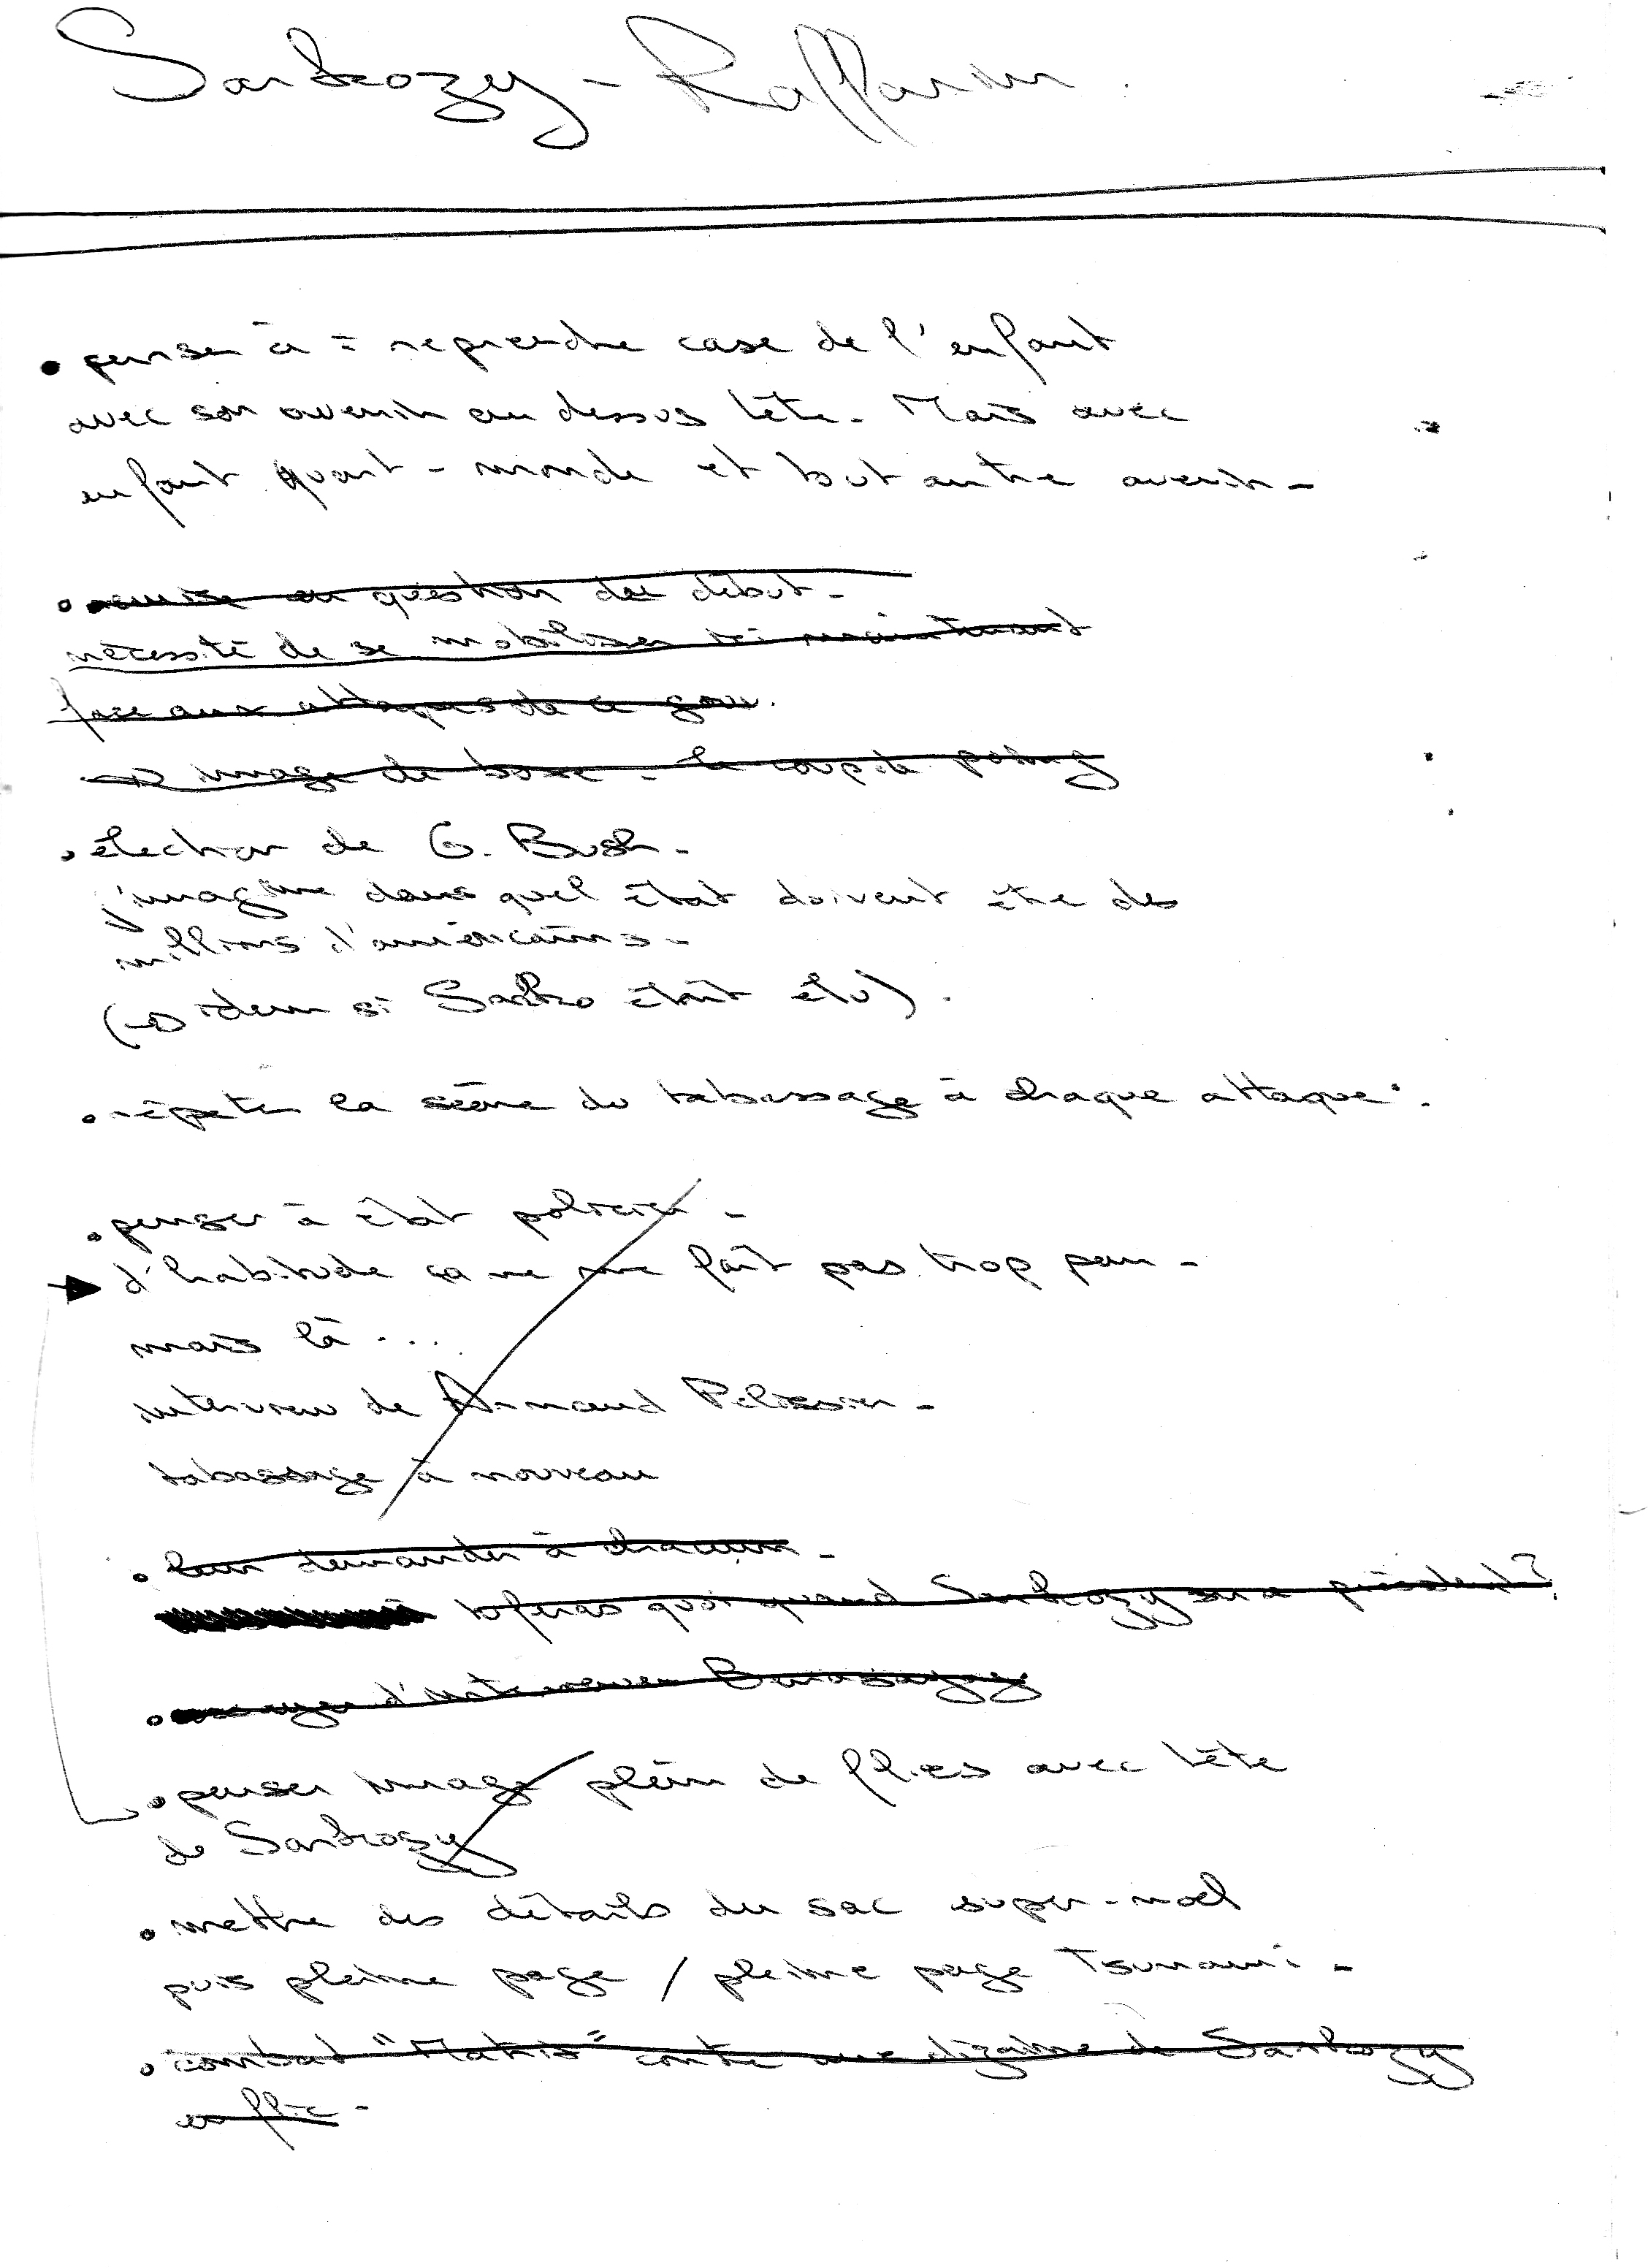 Sarkozy - Raffarin.
• penser à = reprendre case de l'enfant
avec son avenir au dessus tête. Mais avec
enfant quart-monde et tout autre avenir -
• remise en question du début -
nécessité de se mobiliser ici maintenant
face aux attaques de ce gouv.
image de boxe - le coup de poing
• élection de G. Bush -
j'imagine dans quel état doivent être des
millions d'américains -
(→ idem si Sarko était élu).
• répéter la scène du tabassage à chaque attaque.
• penser à état policier -
→ d'habitude ça ne me fait pas trop peur -
mais là ...
interview de Arnaud Pelissier -
tabassage à nouveau
• leur demander à chacun -
tu feras quoi quand Sarkozy sera président ?
• d'interviewer
• penser image plein de flics avec tête
de Sarkozy
• mettre des détails du sac super-noël
puis pleine page / pleine page Tsunami -
• combat "Matrix" contre une dizaine de Sarkozy
en flic -